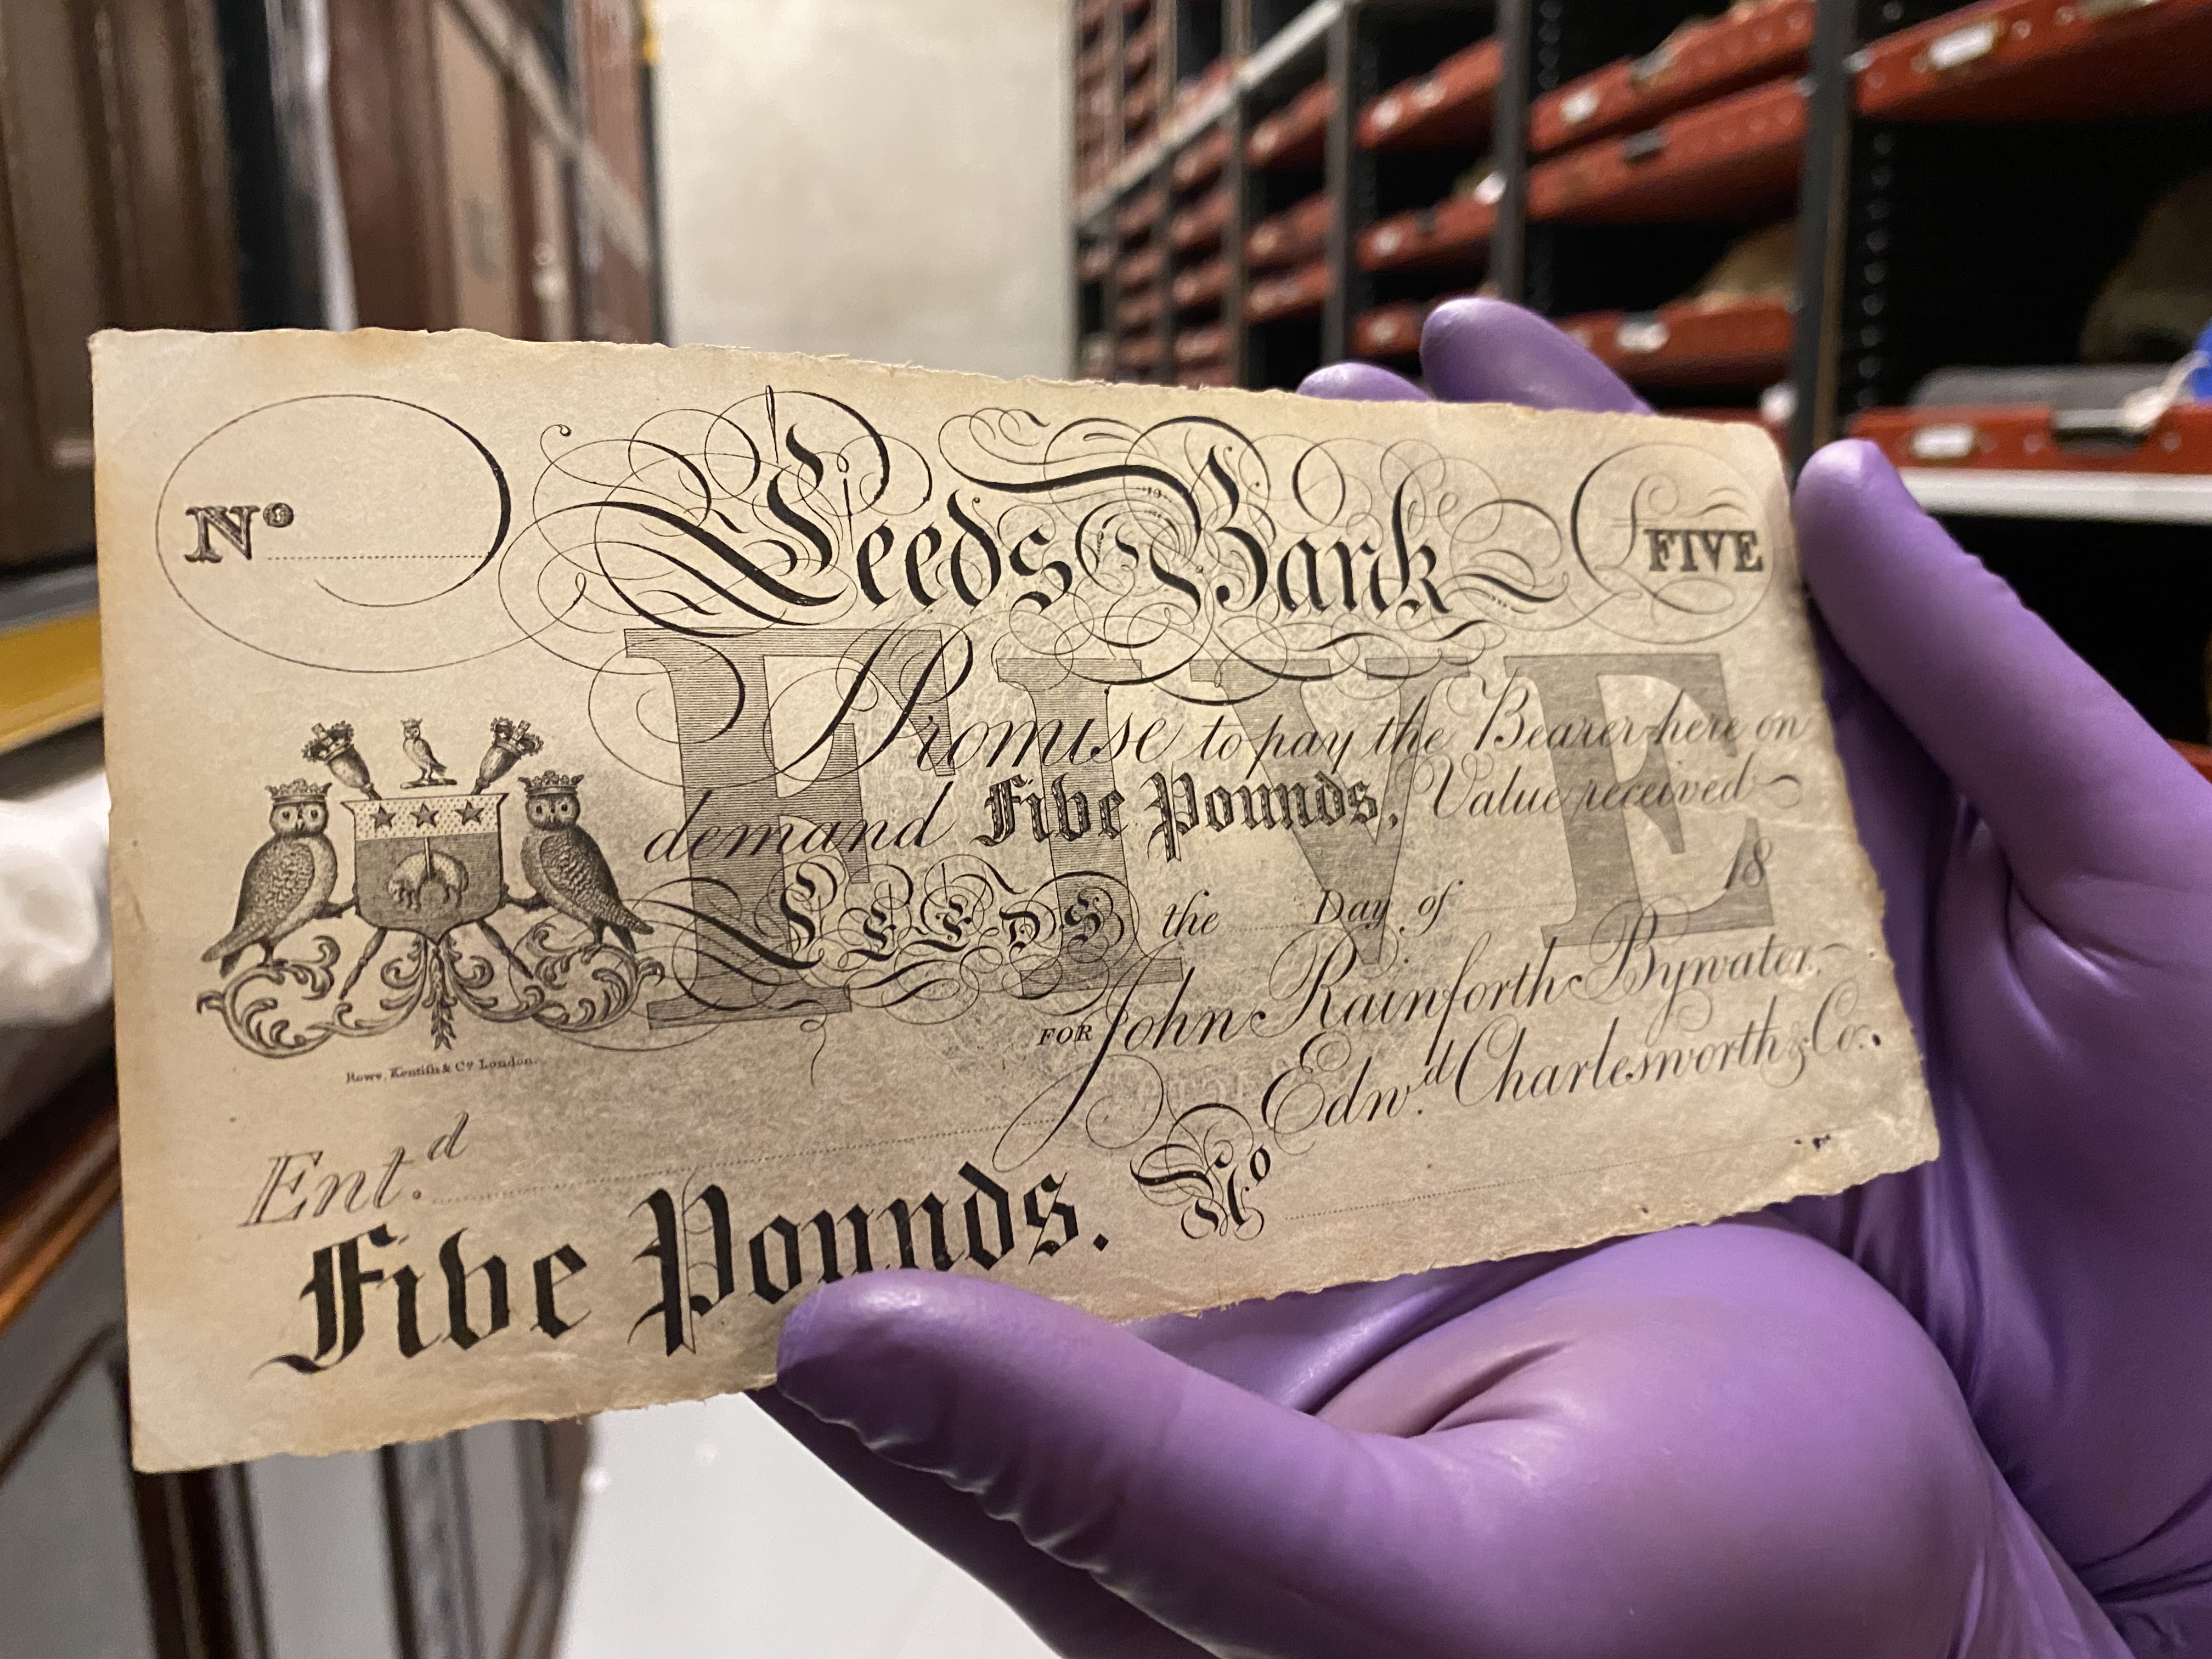 Nº
Leeds Bank
£ FIVE
FIVE
Promise to pay the Bearer here on
demand Five Pounds, Value received
LEEDS the Day of 18
FOR John Rainforth Bywater,
Edwd. Charlesworth & Co.
Rowe, Kentish & Co. London.
Ent.d
Five Pounds. No